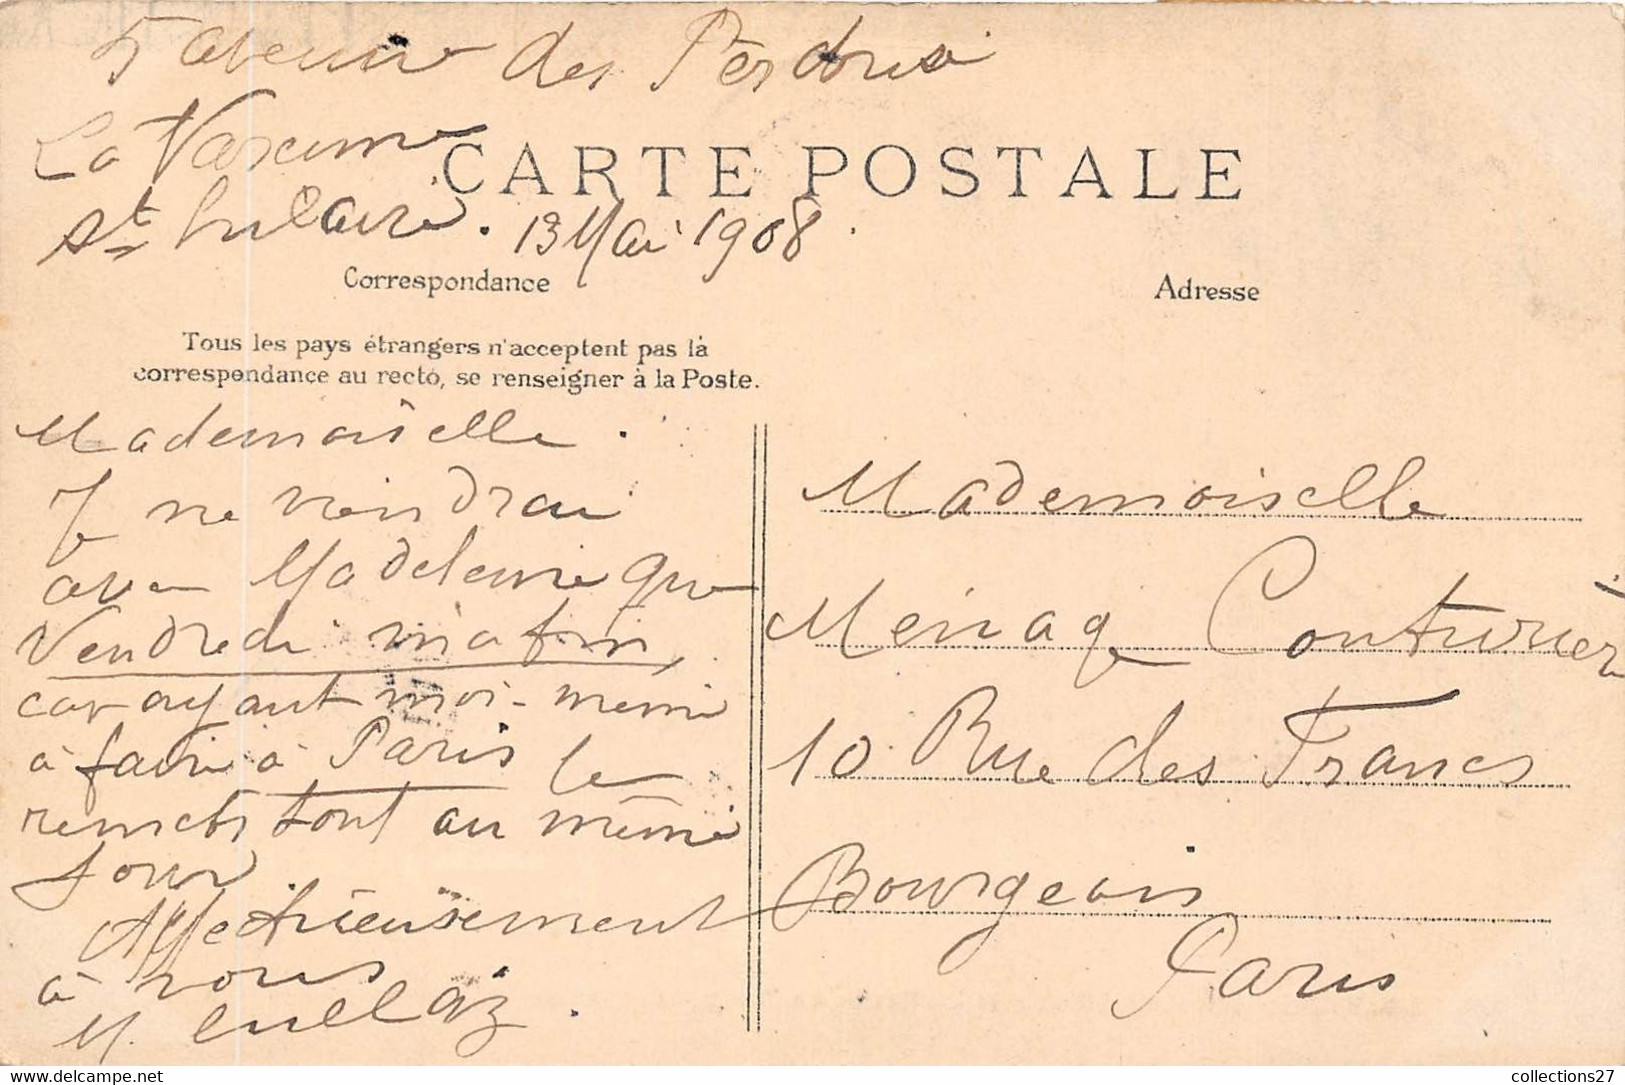 5 avenue des Perdrix
La Varenne
St hilaire. 13 Mai 1908.
CARTE POSTALE
Correspondance
Adresse
Tous les pays étrangers n'acceptent pas la
correspondance au recto, se renseigner à la Poste.
Mademoiselle.
Je ne viendrai
avec Madeleine que
Vendredi matin,
car ayant moi-même
à faire à Paris le
remets tout au même
Jour
Affectueusement
à vous
M. Cullaz.
Mademoiselle
Menaq Couturière
10 Rue des Francs
Bourgeois
Paris
collections27